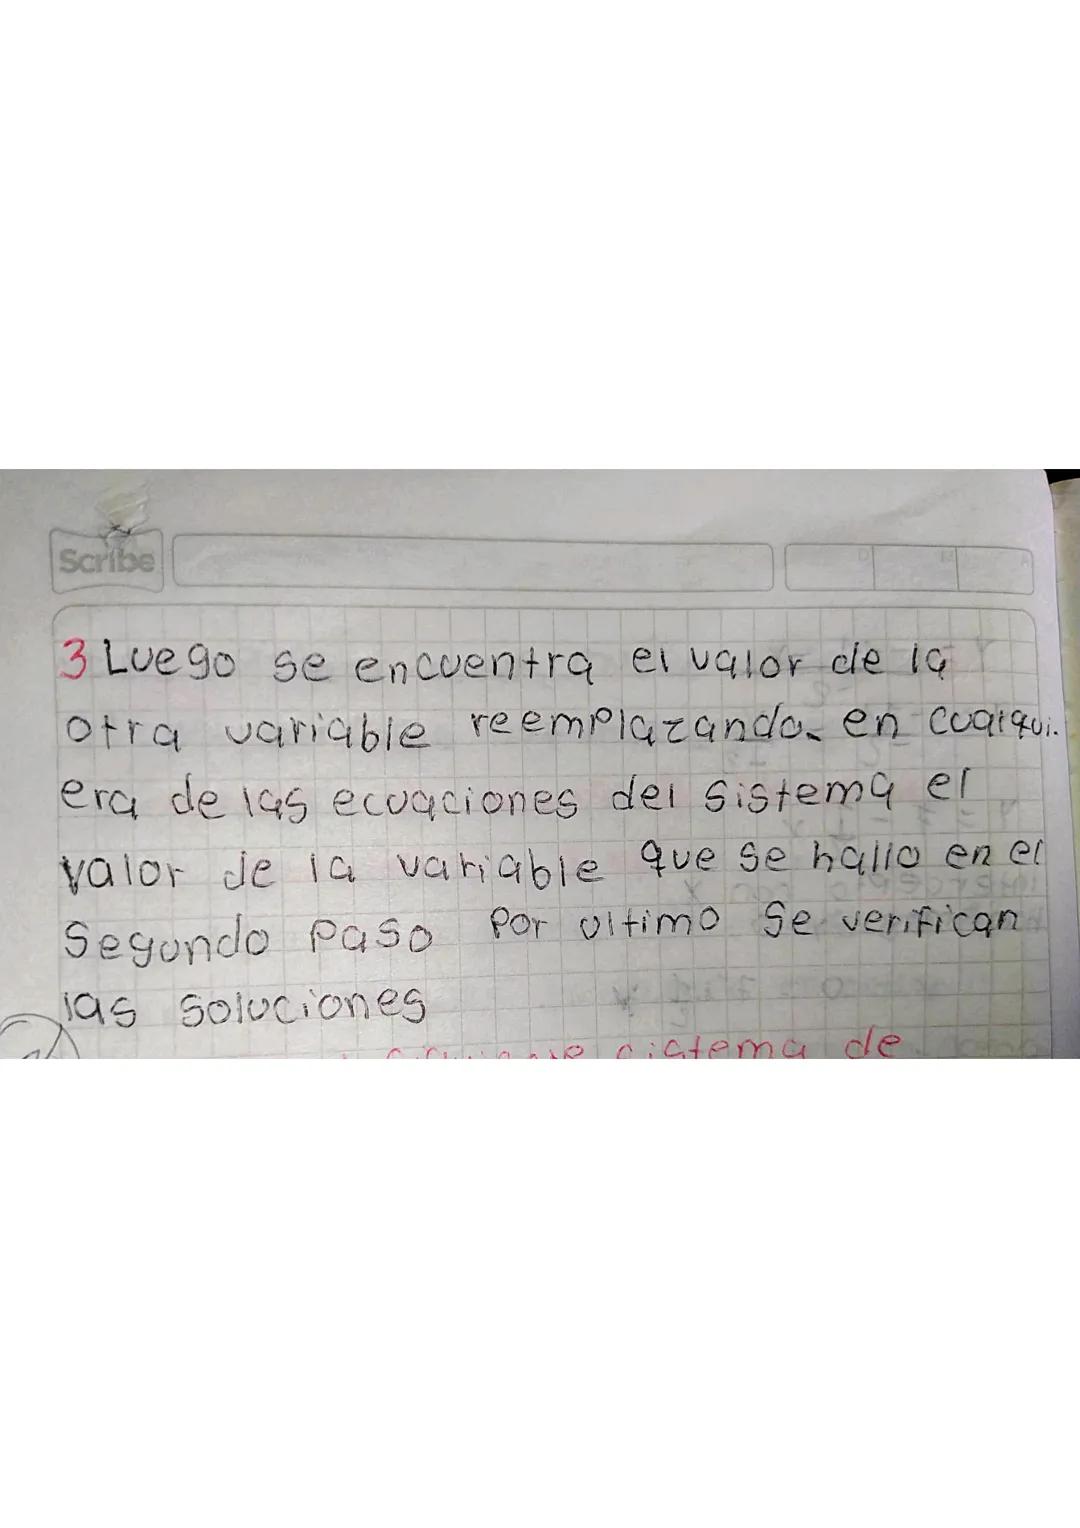 Scribe
D M A
3 Luego se encuentra el valor de la
otra variable reemplazando en cualqui.
era de las ecuaciones del sistema el
valor de la variable que se hallo en el
Segundo Paso Por ultimo Se verifican
las soluciones
sistema de